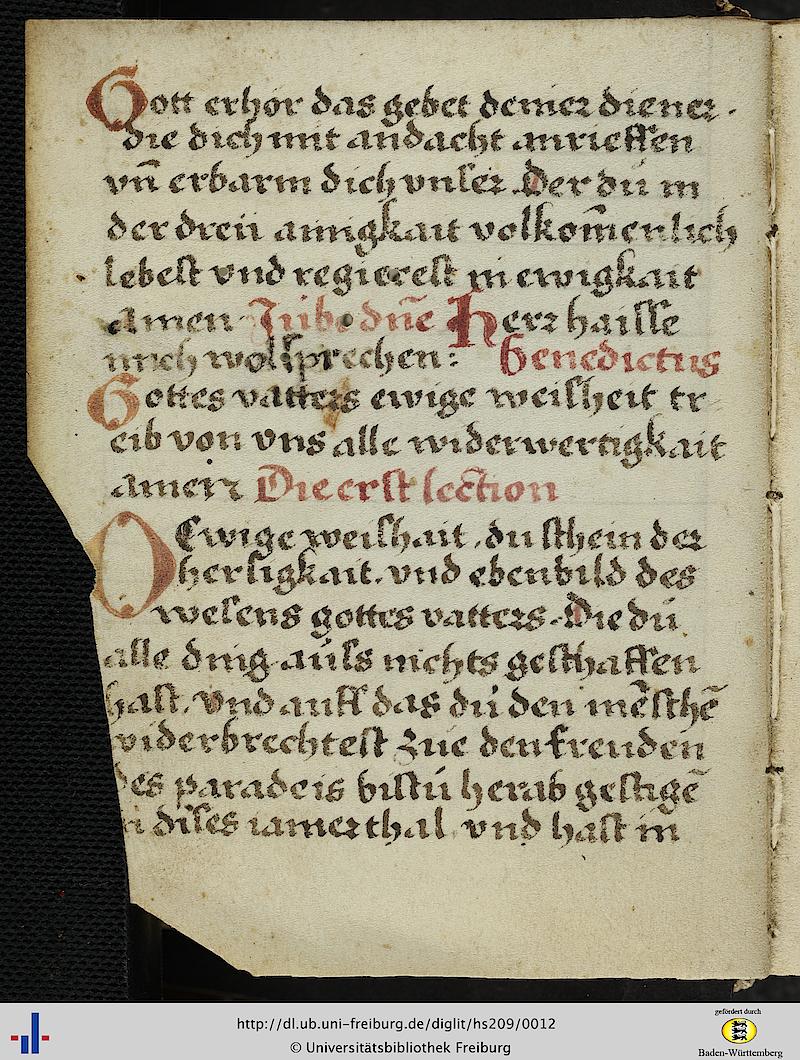 Gott erhör das gebet deiner diener.
die dich mit andacht anrieffen
vn̄ erbarm dich vnser. Der dú in
der dreii ainigkait volkom̄enlich
lebest vnd regierest in ewigkait
amen Júbe dn̄e Herr haisse
mich wolsprechen: benedictus
Gottes vatters ewige weisheit tr
eib von vns alle widerwertigkait
amen Die erst lection
O Ewige weishait. du schein der
hersigkait. vnd ebenbild des
wesens gottes vatters. Die dú
alle ding aúss nichts geschaffen
hast. vnd auff das dú den mēschē
widerbrechtest zue den freuden
des paradeis bistú herab gestigē
in dises iamerthal. vnd hast in
http://dl.ub.uni-freiburg.de/diglit/hs209/0012
© Universitätsbibliothek Freiburg
gefördert durch
Baden-Württemberg